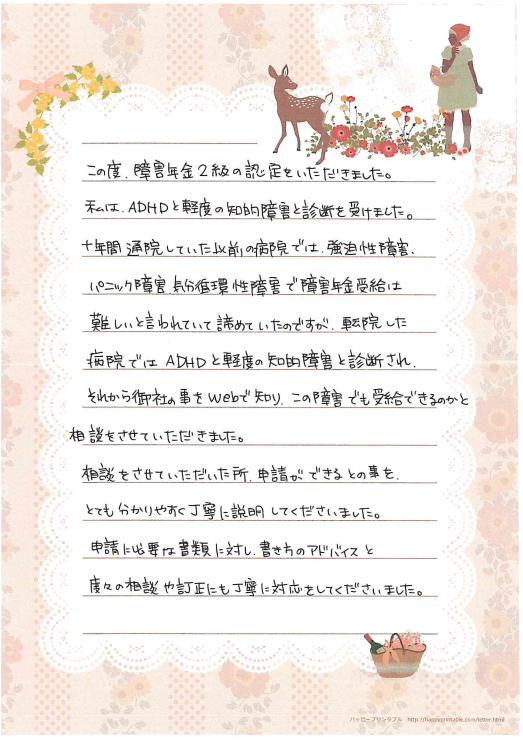 この度、障害年金2級の認定をいただきました。
私は、ADHDと軽度の知的障害と診断を受けました。
十年間通院していた以前の病院では、強迫性障害、
パニック障害、気分循環性障害で障害年金受給は
難しいと言われていて諦めていたのですが、転院した
病院ではADHDと軽度の知的障害と診断され、
それから御社の事をWebで知り、この障害でも受給できるのかと
相談をさせていただきました。
相談をさせていただいた所、申請ができるとの事を、
とても分かりやすく丁寧に説明してくださいました。
申請に必要な書類に対し、書き方のアドバイスと
度々の相談や訂正にも丁寧に対応をしてくださいました。
ハッピープリンタブル http://happyprintable.com/letter.html